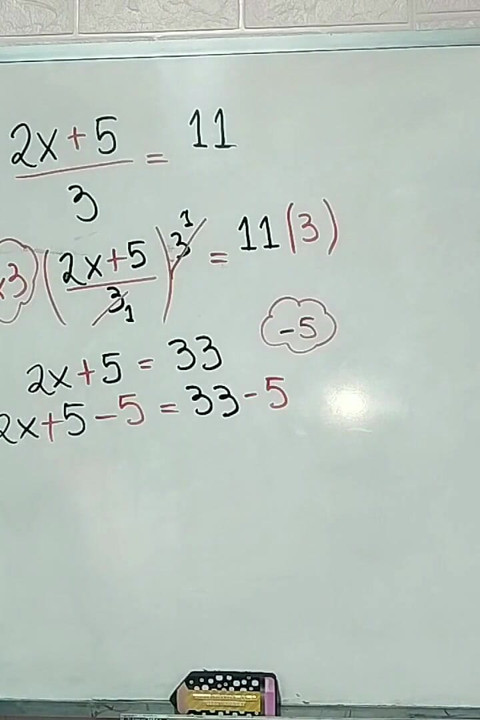 2x+5 = 11
3
x3 (2x+5/3 1) 3 1 = 11(3)
2x+5 = 33 -5
2x+5-5 = 33-5